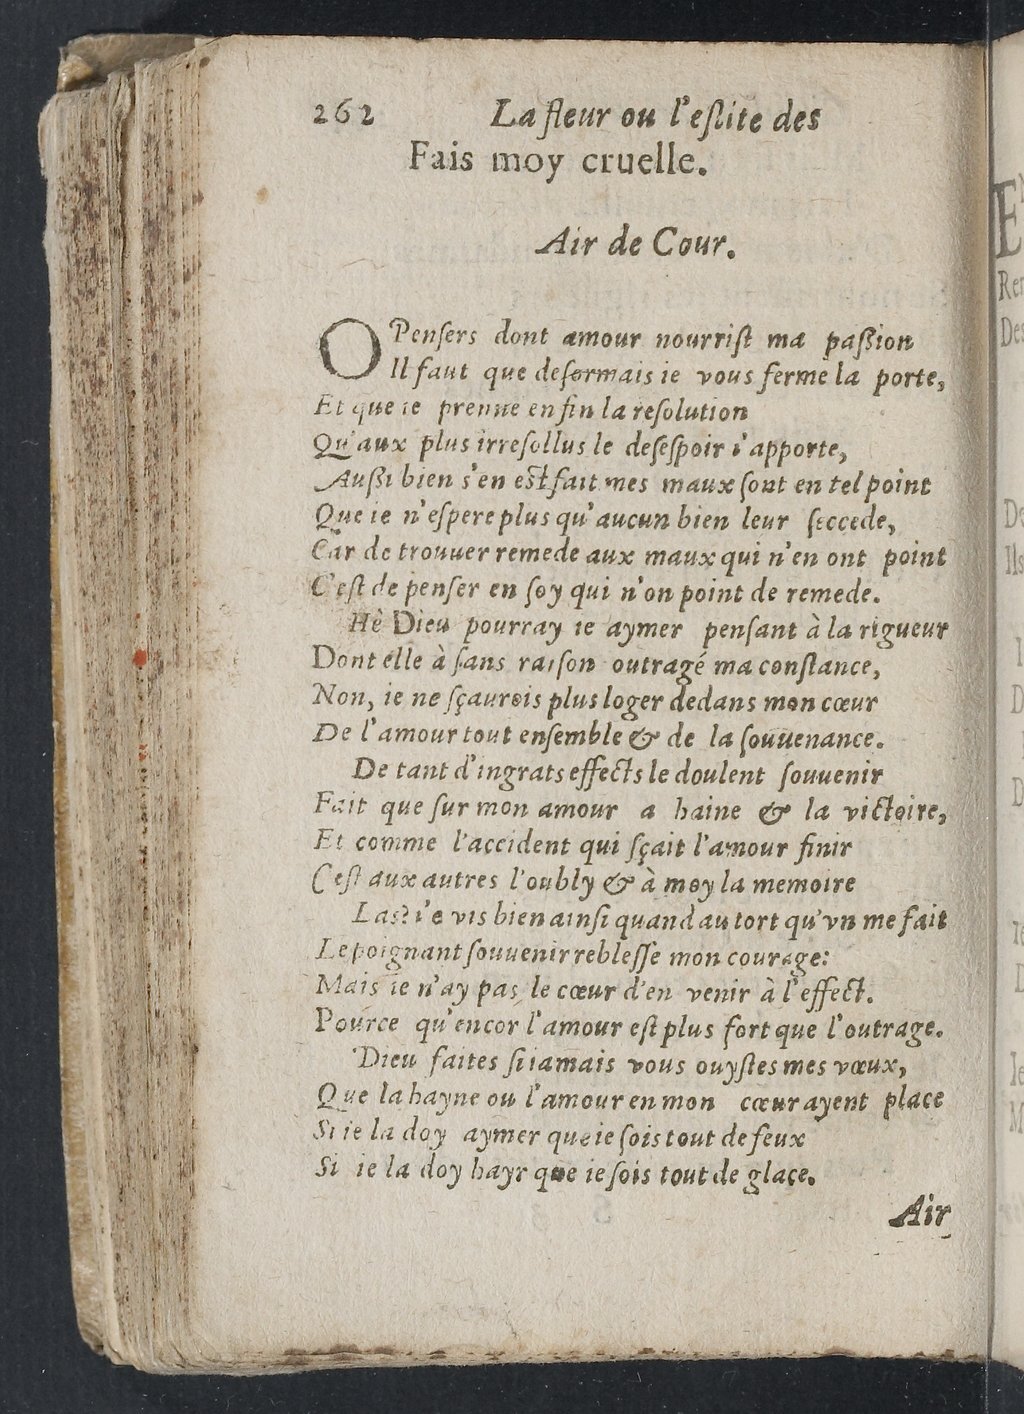 262 La fleur ou l'eslite des
Fais moy cruelle.
Air de Cour.
O Pensers dont amour nourrist ma passion
Il faut que desormais ie vous ferme la porte,
Et que ie prenne enfin la resolution
Qu'aux plus irresollus le desespoir i'apporte,
Aussi bien s'en est fait mes maux sont en tel point
Que ie n'espere plus qu'aucun bien leur seccede,
Car de trouuer remede aux maux qui n'en ont point
C'est de penser en soy qui n'on point de remede.
Hê Dieu pourray ie aymer pensant à la rigueur
Dont elle à sans raison outragé ma constance,
Non, ie ne sçaurois plus loger dedans mon cœur
De l'amour tout ensemble & de la souuenance.
De tant d'ingrats effects le doulent souuenir
Fait que sur mon amour a haine & la victoire,
Et comme l'accident qui sçait l'amour finir
C'est aux autres l'oubly & à moy la memoire
Las? i'e vis bien ainsi quand au tort qu'vn me fait
Le poignant souuenir reblesse mon courage:
Mais ie n'ay pas le cœur d'en venir à l'effect.
Pource qu'encor l'amour est plus fort que l'outrage.
Dieu faites si iamais vous ouystes mes vœux,
Que la hayne ou l'amour en mon cœur ayent place
Si ie la doy aymer que ie sois tout de feux
Si ie la doy hayr que ie sois tout de glace.
Air